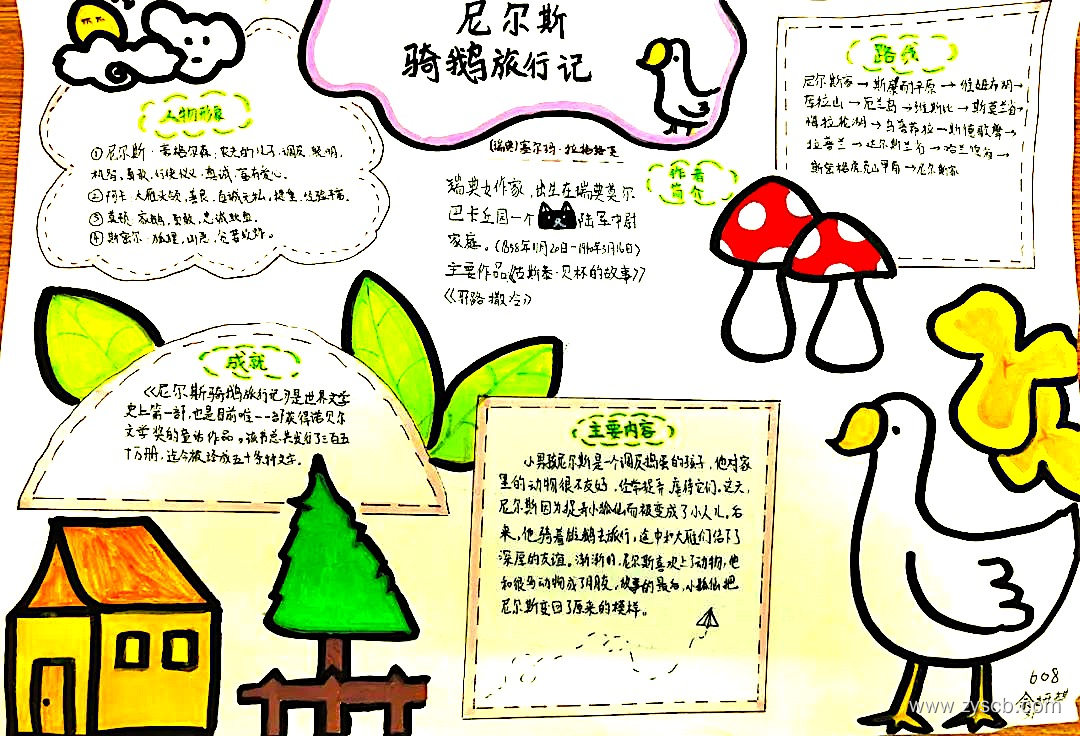 尼尔斯
骑鹅旅行记
人物形象
①尼尔斯·豪格尔森:农夫的儿子,调皮,聪明,
机智,勇敢,行侠仗义,忠诚,富有爱心。
②阿卡:大雁头领,善良,真诚无私,稳重,经验丰富。
③莫顿:家鹅,勇敢,忠诚
④斯密尔:狐狸,凶恶,
[瑞典]塞尔玛·拉格洛芙
作者
简介
瑞典女作家,出生在瑞典莫尔
巴卡庄园一个陆军中尉
家庭。(1858年11月20日-1940年3月16日)
主要作品《古斯泰·贝林的故事》
《耶路撒冷》
路线
尼尔斯家→斯康耐平原→维姆布湖→
库拉山→厄兰岛→维斯比→斯莫兰省→
→乌普萨拉→斯德歌摩→
拉普兰→达尔斯兰省→哈兰德省→
斯坎格侯克山早角→尼尔斯家
成就
《尼尔斯骑鹅旅行记》是世界文学
史上第一部,也是目前唯一一部获得诺贝尔
文学奖的童话作品。该书总共发行了三百五
十万册,迄今被译成五十余种文字。
主要内容
小男孩尼尔斯是一个调皮捣蛋的孩子,他对家
里的动物很不友好,经常捉弄,虐待它们。这天,
尼尔斯因为捉弄小狐仙而被变成了小人儿,后
来,他骑着雄鹅去旅行,途中和大雁们结下了
深厚的友谊。渐渐的,尼尔斯喜欢上了动物,他
和很多动物成了朋友,故事的最后,小狐仙把
尼尔斯变回了原来的模样。
608
www.zyscb.com